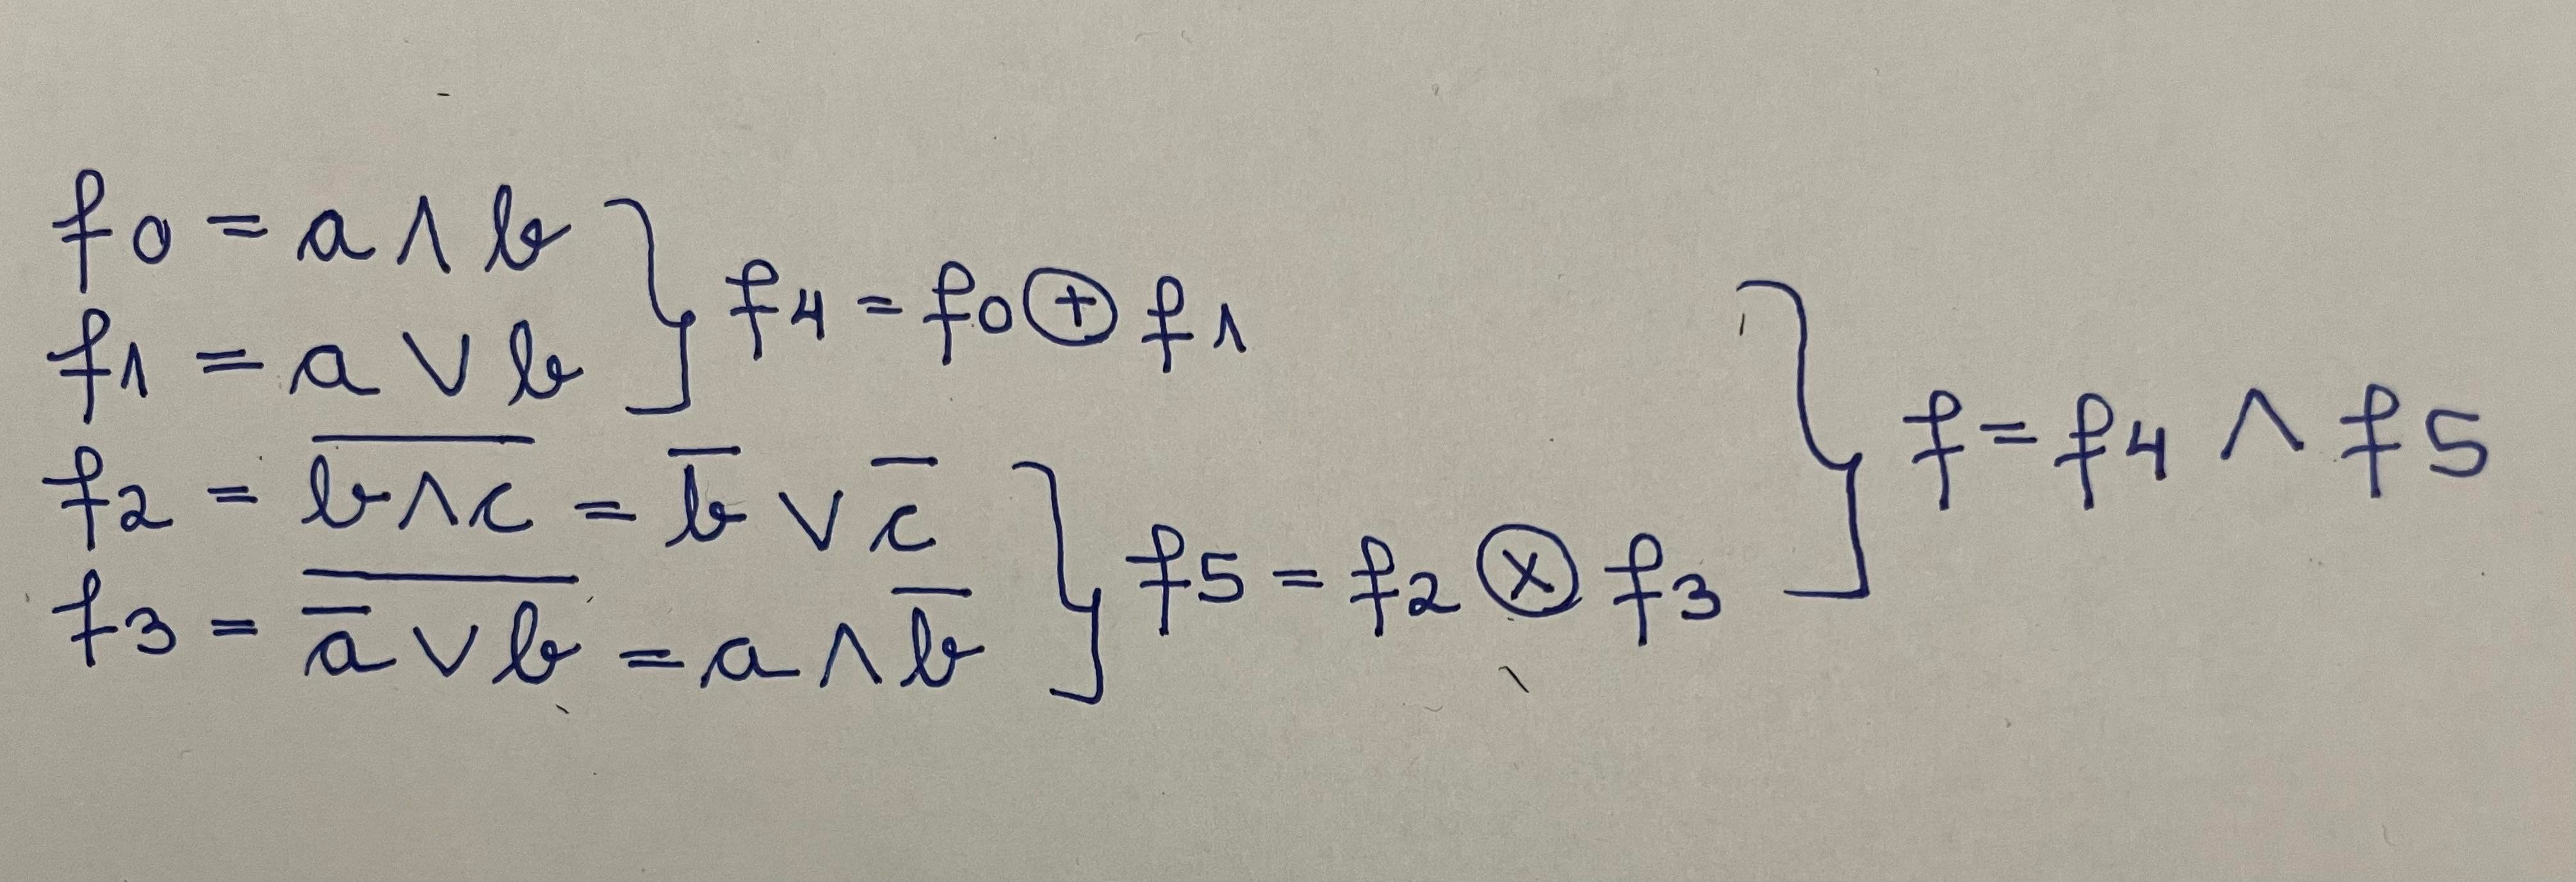 f0 = a ∧ b
f1 = a ∨ b
f4 = f0 ⊕ f1
f2 = \overline{b ∧ c} = \overline{b} ∨ \overline{c}
f3 = \overline{\overline{a} ∨ b} = a ∧ \overline{b}
f5 = f2 ⊗ f3
f = f4 ∧ f5